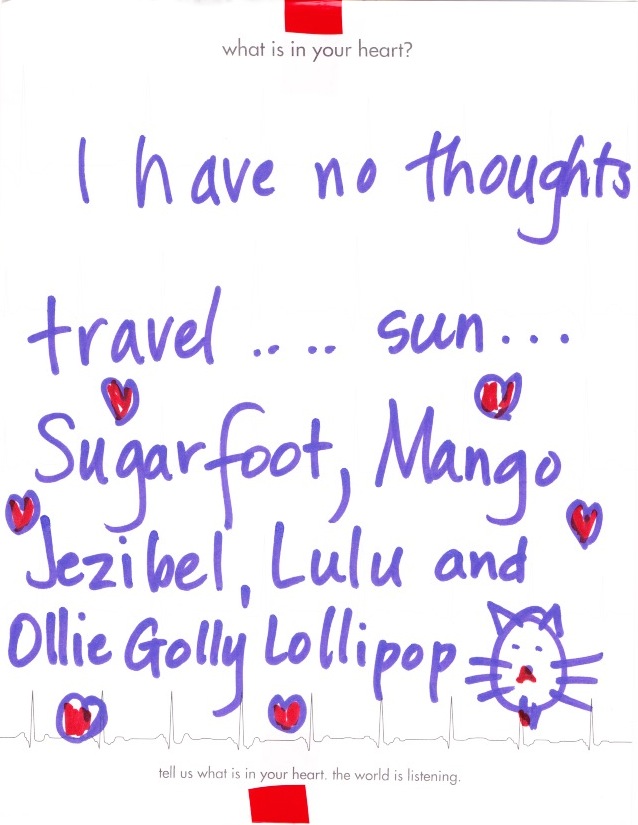 what is in your heart?
I have no thoughts
travel .... sun...
Sugarfoot, Mango
Jezibel, Lulu and
Ollie Golly Lollipop
tell us what is in your heart. the world is listening.